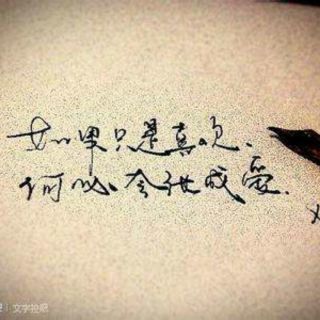 如果只是喜欢、
何必夸张成爱.
文字控吧